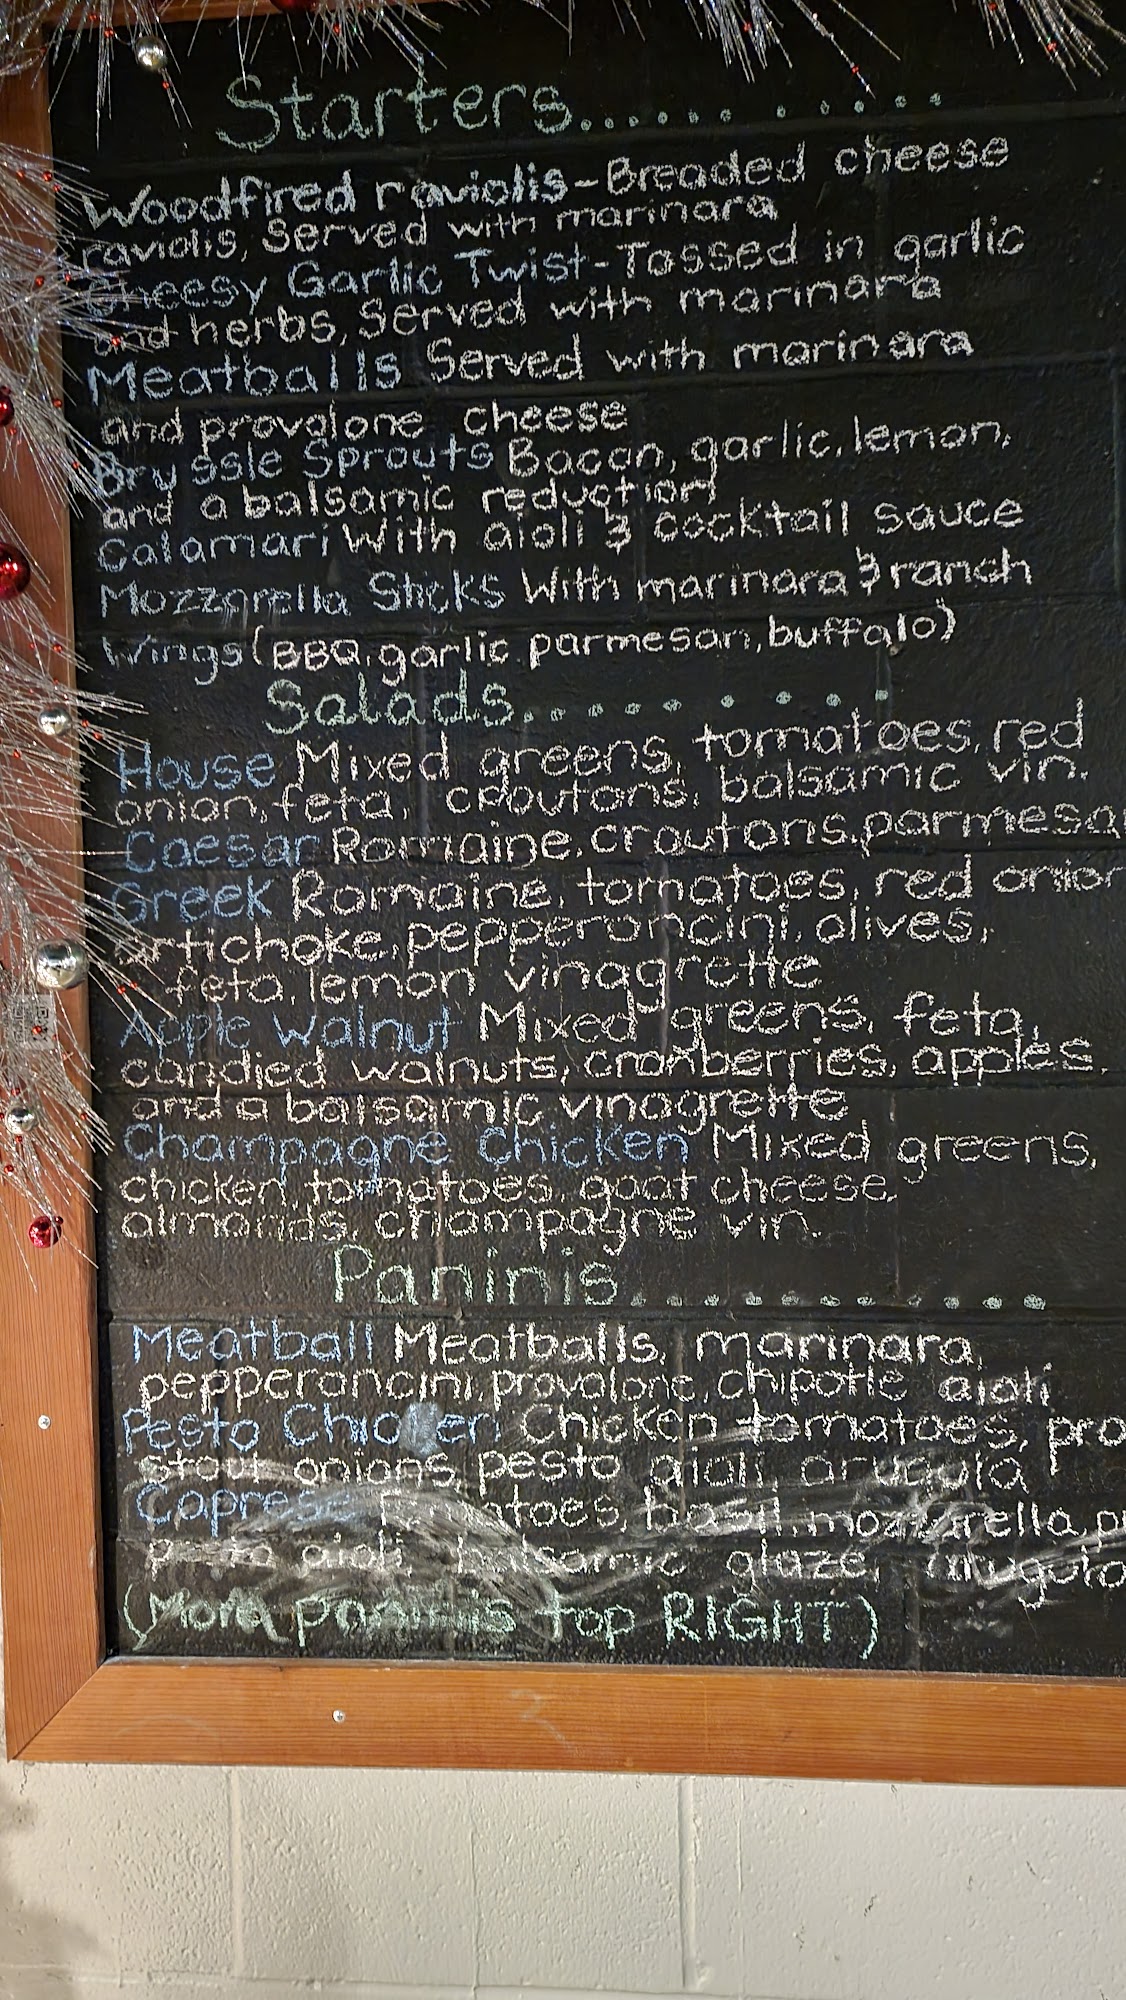 Starters............
Woodfired raviolis-Breaded cheese
raviolis, Served with marinara
Cheesy Garlic Twist-Tossed in garlic
and herbs, Served with marinara
Meatballs Served with marinara
and provolone cheese
Brussle Sprouts Bacon, garlic, lemon,
and a balsamic reduction
Calamari With aioli & cocktail sauce
Mozzarella Sticks With marinara & ranch
Wings (BBQ, garlic parmesan, buffalo)
Salads.........
House Mixed greens, tomatoes, red
onion, feta, croutons, balsamic vin.
Caesar Romaine, croutons, parmesan
Greek Romaine, tomatoes, red onion
artichoke, pepperoncini, olives,
feta, lemon vinagrette
Apple Walnut Mixed greens, feta,
candied walnuts, cranberries, apples,
and a balsamic vinagrette
Champagne Chicken Mixed greens,
chicken tomatoes, goat cheese,
almonds, champagne vin.
Paninis..........
Meatball Meatballs, marinara,
pepperoncini, provolone, chipotle aioli
Pesto Chicken Chicken tomatoes, pro
stout onions, pesto aioli, arugula
Caprese Tomatoes, basil, mozzarella, p
Pesto aioli, balsamic glaze, arugula
(More Paninis top RIGHT)